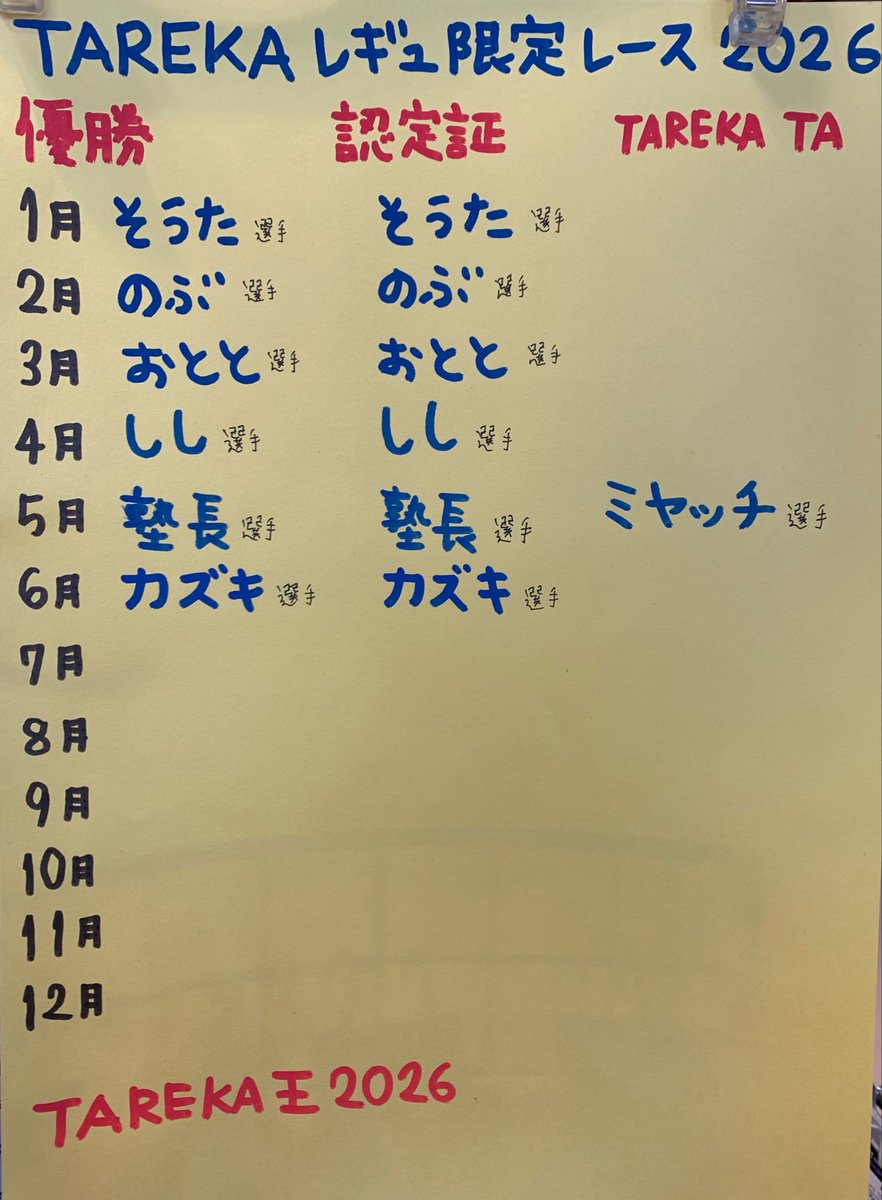 TAREKAレギュ限定レース 2026
優勝 認定証 TAREKA TA
1月 そうた 選手 そうた 選手
2月 のぶ 選手 のぶ 選手
3月 おとと 選手 おとと 選手
4月 しし 選手 しし 選手
5月 塾長 選手 塾長 選手 ミヤッチ 選手
6月 カズキ 選手 カズキ 選手
7月
8月
9月
10月
11月
12月
TAREKA王2026